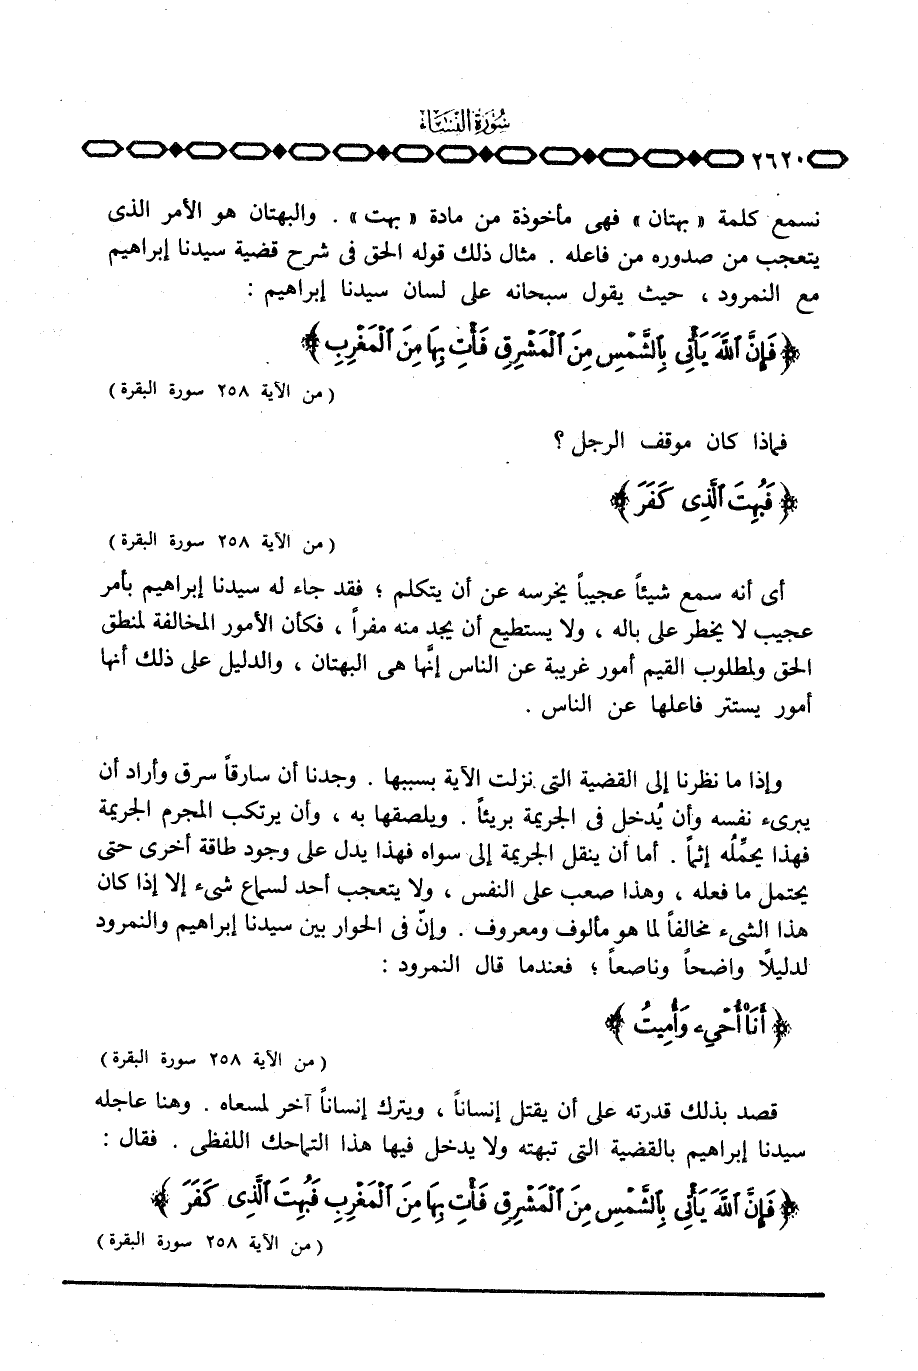 سُورَةُ النِّسَاء
٢٦٢٠
نسمع كلمة « بهتان » فهى مأخوذة من مادة « بهت » . والبهتان هو الأمر الذى
يتعجب من صدوره من فاعله . مثال ذلك قوله الحق فى شرح قضية سيدنا إبراهيم
مع النمرود ، حيث يقول سبحانه على لسان سيدنا إبراهيم :
﴿ فَإِنَّ ٱللَّهَ يَأْتِى بِٱلشَّمْسِ مِنَ ٱلْمَشْرِقِ فَأْتِ بِهَا مِنَ ٱلْمَغْرِبِ ﴾
( من الآية ٢٥٨ سورة البقرة )
فماذا كان موقف الرجل ؟
﴿ فَبُهِتَ ٱلَّذِى كَفَرَ ﴾
( من الآية ٢٥٨ سورة البقرة )
أى أنه سمع شيئاً عجيباً يخرسه عن أن يتكلم ؛ فقد جاء له سيدنا إبراهيم بأمر
عجيب لا يخطر على باله ، ولا يستطيع أن يجد منه مفراً ، فكأن الأمور المخالفة لمنطق
الحق ولمطلوب القيم أمور غريبة عن الناس إنَّها هى البهتان ، والدليل على ذلك أنها
أمور يستتر فاعلها عن الناس .
وإذا ما نظرنا إلى القضية التى نزلت الآية بسببها . وجدنا أن سارقاً سرق وأراد أن
يبرىء نفسه وأن يُدخل فى الجريمة بريئاً . ويلصقها به ، وأن يرتكب المجرم الجريمة
فهذا يحمِّلُه إثماً . أما أن ينقل الجريمة إلى سواه فهذا يدل على وجود طاقة أخرى حتى
يحتمل ما فعله ، وهذا صعب على النفس ، ولا يتعجب أحد لسماع شىء إلا إذا كان
هذا الشىء مخالفاً لما هو مألوف ومعروف . وإنّ فى الحوار بين سيدنا إبراهيم والنمرود
لدليلًا واضحاً وناصعاً ؛ فعندما قال النمرود :
﴿ أَنَا۠ أُحْىِۦ وَأُمِيتُ ﴾
( من الآية ٢٥٨ سورة البقرة )
قصد بذلك قدرته على أن يقتل إنساناً ، ويترك إنساناً آخر لمسعاه . وهنا عاجله
سيدنا إبراهيم بالقضية التى تبهته ولا يدخل فيها هذا التماحك اللفظى . فقال :
﴿ فَإِنَّ ٱللَّهَ يَأْتِى بِٱلشَّمْسِ مِنَ ٱلْمَشْرِقِ فَأْتِ بِهَا مِنَ ٱلْمَغْرِبِ فَبُهِتَ ٱلَّذِى كَفَرَ ﴾
( من الآية ٢٥٨ سورة البقرة )